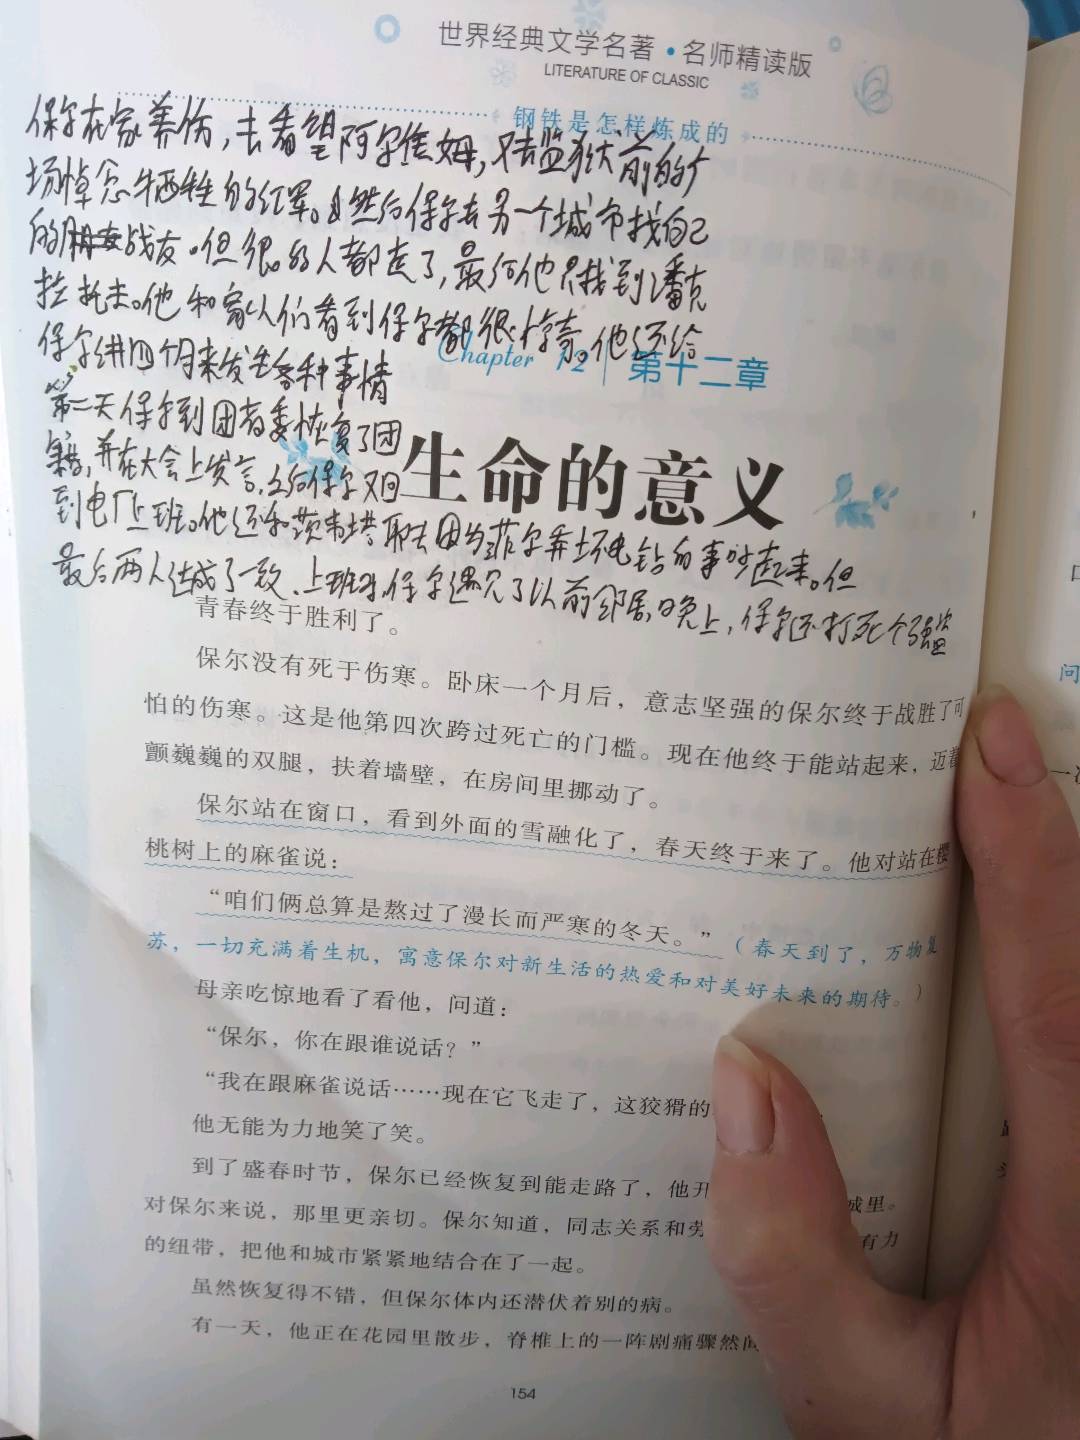 世界经典文学名著·名师精读版
LITERATURE OF CLASSIC
钢铁是怎样炼成的
保尔在家养伤,去看望阿尔焦姆,又去监狱前的
场悼念牺牲的红军。然后保尔去另一个城市找自己
的战友。但很多的人都走了,最后他只找到潘克
拉托夫。他和家人们看到保尔都很惊奇。他还给
保尔讲四个月来发生各种事情
第二天保尔到团省委恢复了团
籍,并在大会上发言,之后保尔又回
到电厂上班。他还和茨韦塔耶夫因为菲尔弄坏电钻的事吵起来。但
最后两人达成了一致、上班时,保尔遇见了以前邻居,晚上,保尔还打死个强盗
Chapter 12 第十二章
生命的意义
青春终于胜利了。
保尔没有死于伤寒。卧床一个月后,意志坚强的保尔终于战胜了可
怕的伤寒。这是他第四次跨过死亡的门槛。现在他终于能站起来,迈着
颤巍巍的双腿,扶着墙壁,在房间里挪动了。
保尔站在窗口,看到外面的雪融化了,春天终于来了。他对站在樱
桃树上的麻雀说:
“咱们俩总算是熬过了漫长而严寒的冬天。”(春天到了,万物复
苏,一切充满着生机,寓意保尔对新生活的热爱和对美好未来的期待。)
母亲吃惊地看了看他,问道:
“保尔,你在跟谁说话?”
“我在跟麻雀说话……现在它飞走了,这狡猾的
他无能为力地笑了笑。
到了盛春时节,保尔已经恢复到能走路了,他开 城里。
对保尔来说,那里更亲切。保尔知道,同志关系和劳 有力
的纽带,把他和城市紧紧地结合在了一起。
虽然恢复得不错,但保尔体内还潜伏着别的病。
有一天,他正在花园里散步,脊椎上的一阵剧痛骤然间
154
问